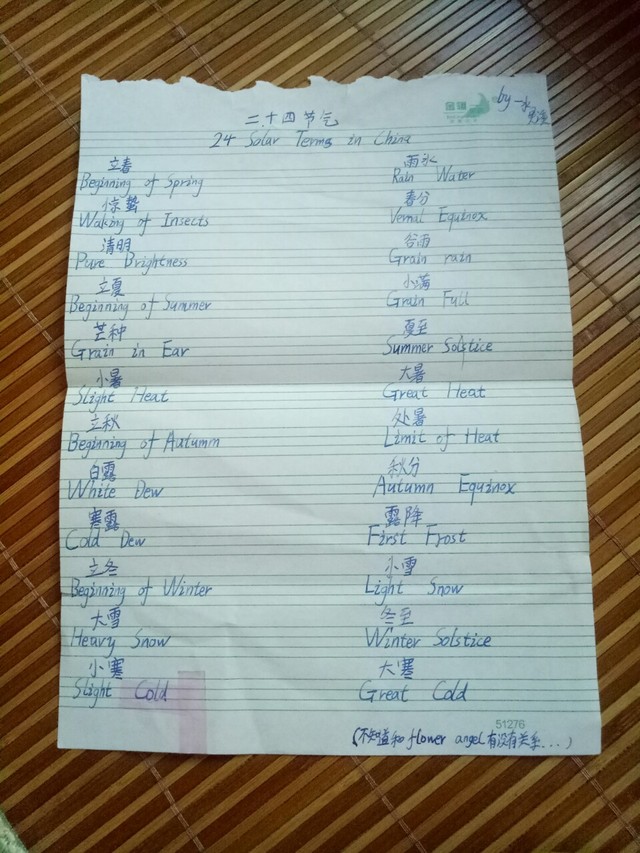 二十四节气
24 Solar Terms in China
by 一水
立春 雨水
Beginning of Spring Rain Water
惊蛰 春分
Waking of Insects Vernal Equinox
清明 谷雨
Pure Brightness Grain rain
立夏 小满
Beginning of Summer Grain Full
芒种 夏至
Grain in Ear Summer Solstice
小暑 大暑
Slight Heat Great Heat
立秋 处暑
Beginning of Autumn Limit of Heat
白露 秋分
White Dew Autumn Equinox
寒露 露降
Cold Dew First Frost
立冬 小雪
Beginning of Winter Light Snow
大雪 冬至
Heavy Snow Winter Solstice
小寒 大寒
Slight Cold Great Cold
51276
(不知道和flower angel有没有关系...)